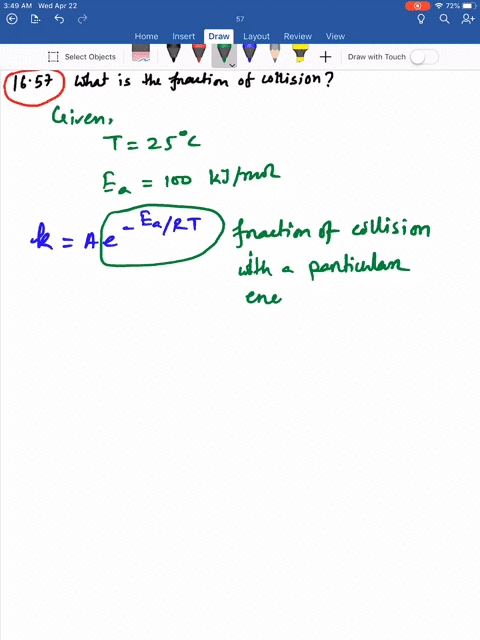 3:49 AM Wed Apr 22
72%
57
Home Insert Draw Layout Review View
Select Objects
Draw with Touch
16.57 What is the fraction of collision?
Given,
T = 25°C
Ea = 100 kJ/mol
k = A e^-Ea/RT fraction of collision
with a particular
ene